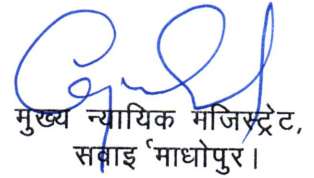 मुख्य न्यायिक मजिस्ट्रेट,
सवाई माधोपुर।